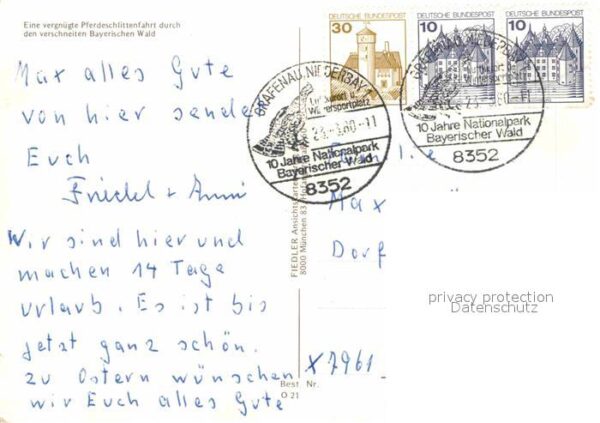 Eine vergnügte Pferdeschlittenfahrt durch
den verschneiten Bayerischen Wald
Max alles Gute
von hier senden
Euch
Friedel + Anni
Wir sind hier und
machen 14 Tage
Urlaub. Es ist bis
jetzt ganz schön.
zu Ostern wünschen
wir Euch alles Gute
FIEDLER Ansichtskarten
8000 München 83
Best Nr.
O 21
DEUTSCHE BUNDESPOST
30
DEUTSCHE BUNDESPOST
10
DEUTSCHE BUNDESPOST
10
GRAFENAU, NIEDERBAY 1
Luftkurort
Wintersportplatz
10 Jahre Nationalpark
Bayerischer Wald
8352
GRAFENAU, NIEDERBAY
10 Jahre Nationalpark
Bayerischer Wald
8352
Max
Dorf
X7961
privacy protection
Datenschutz